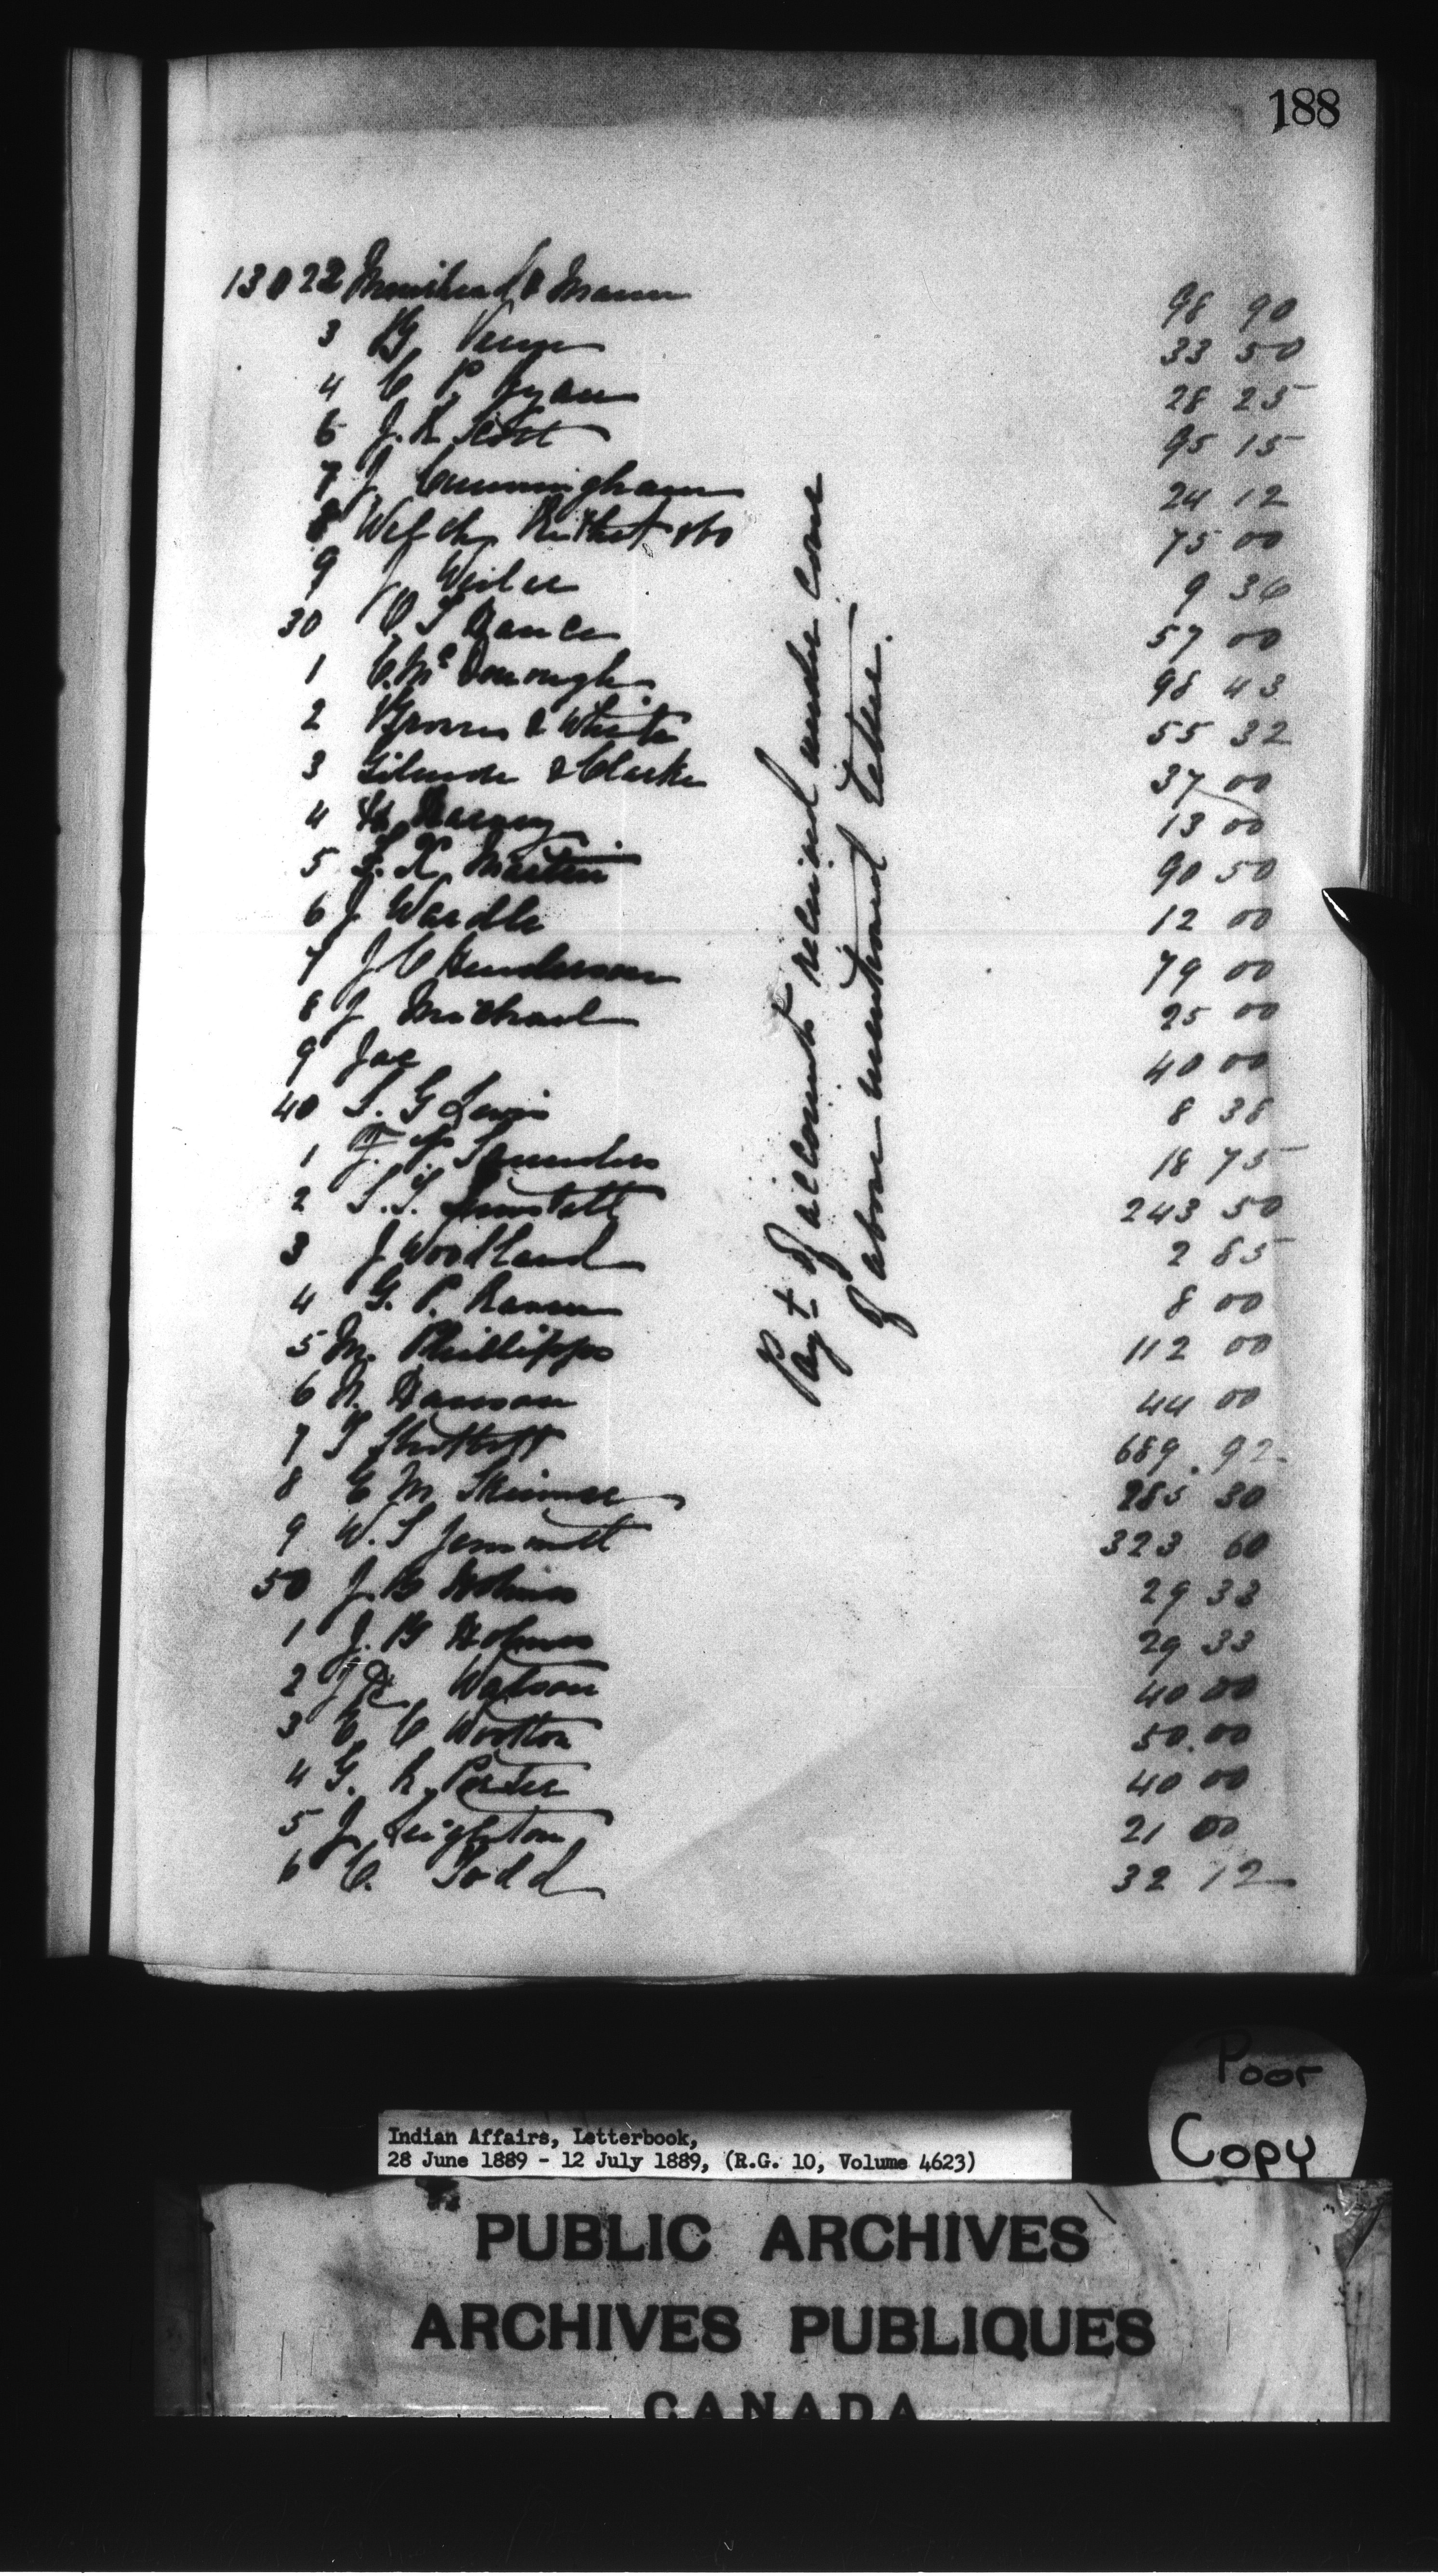 188
13022 & Mann 98 90
3 33 50
4 C P Ryan 28 25
6 J. R. Scott 95 15
7 J Cunningham 24 12
8 &Co 75 00
9 J 9 36
30 57 00
1 C. McDonough 98 43
2 Brown & White 55 32
3 Gilmour & Clarke 37 00
4 13 00
5 Martin 90 50
6 J Wardle 12 00
7 J C Henderson 79 00
8 J Michael 25 00
9 Jac 40 00
40 S. G Lewis 8 38
1 Saunders 18 75
2 243 50
3 J Woodland 2 85
4 G. P. 8 00
5 M. Phillipps 112 00
6 44 00
7 689.92
8 E M Skinner 285 30
9 W. S 323 60
50 J B Holmes 29 33
1 J. B Holmes 29 33
2 Watson 40 00
3 C Wootton 50.00
4 G. R. Porter 40 00
5 J Leighton 21 00
6 C. Todd 32 12
Payt of account received under cover
of above mentioned letter.
Poor
Copy
Indian Affairs, Letterbook,
28 June 1889 - 12 July 1889, (R.G. 10, Volume 4623)
PUBLIC ARCHIVES
ARCHIVES PUBLIQUES
CANADA